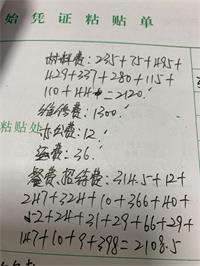 始凭证粘贴单
材料费：235+75+495+
429+337+280+115+
110+44=2120.
维修费：1300.
粘贴处
办公费：12
运费：36.
餐费.招待费：314.5+12+
247+324+10+366+40+
52+24+31+29+66+29+
147+10+9+398=2108.5